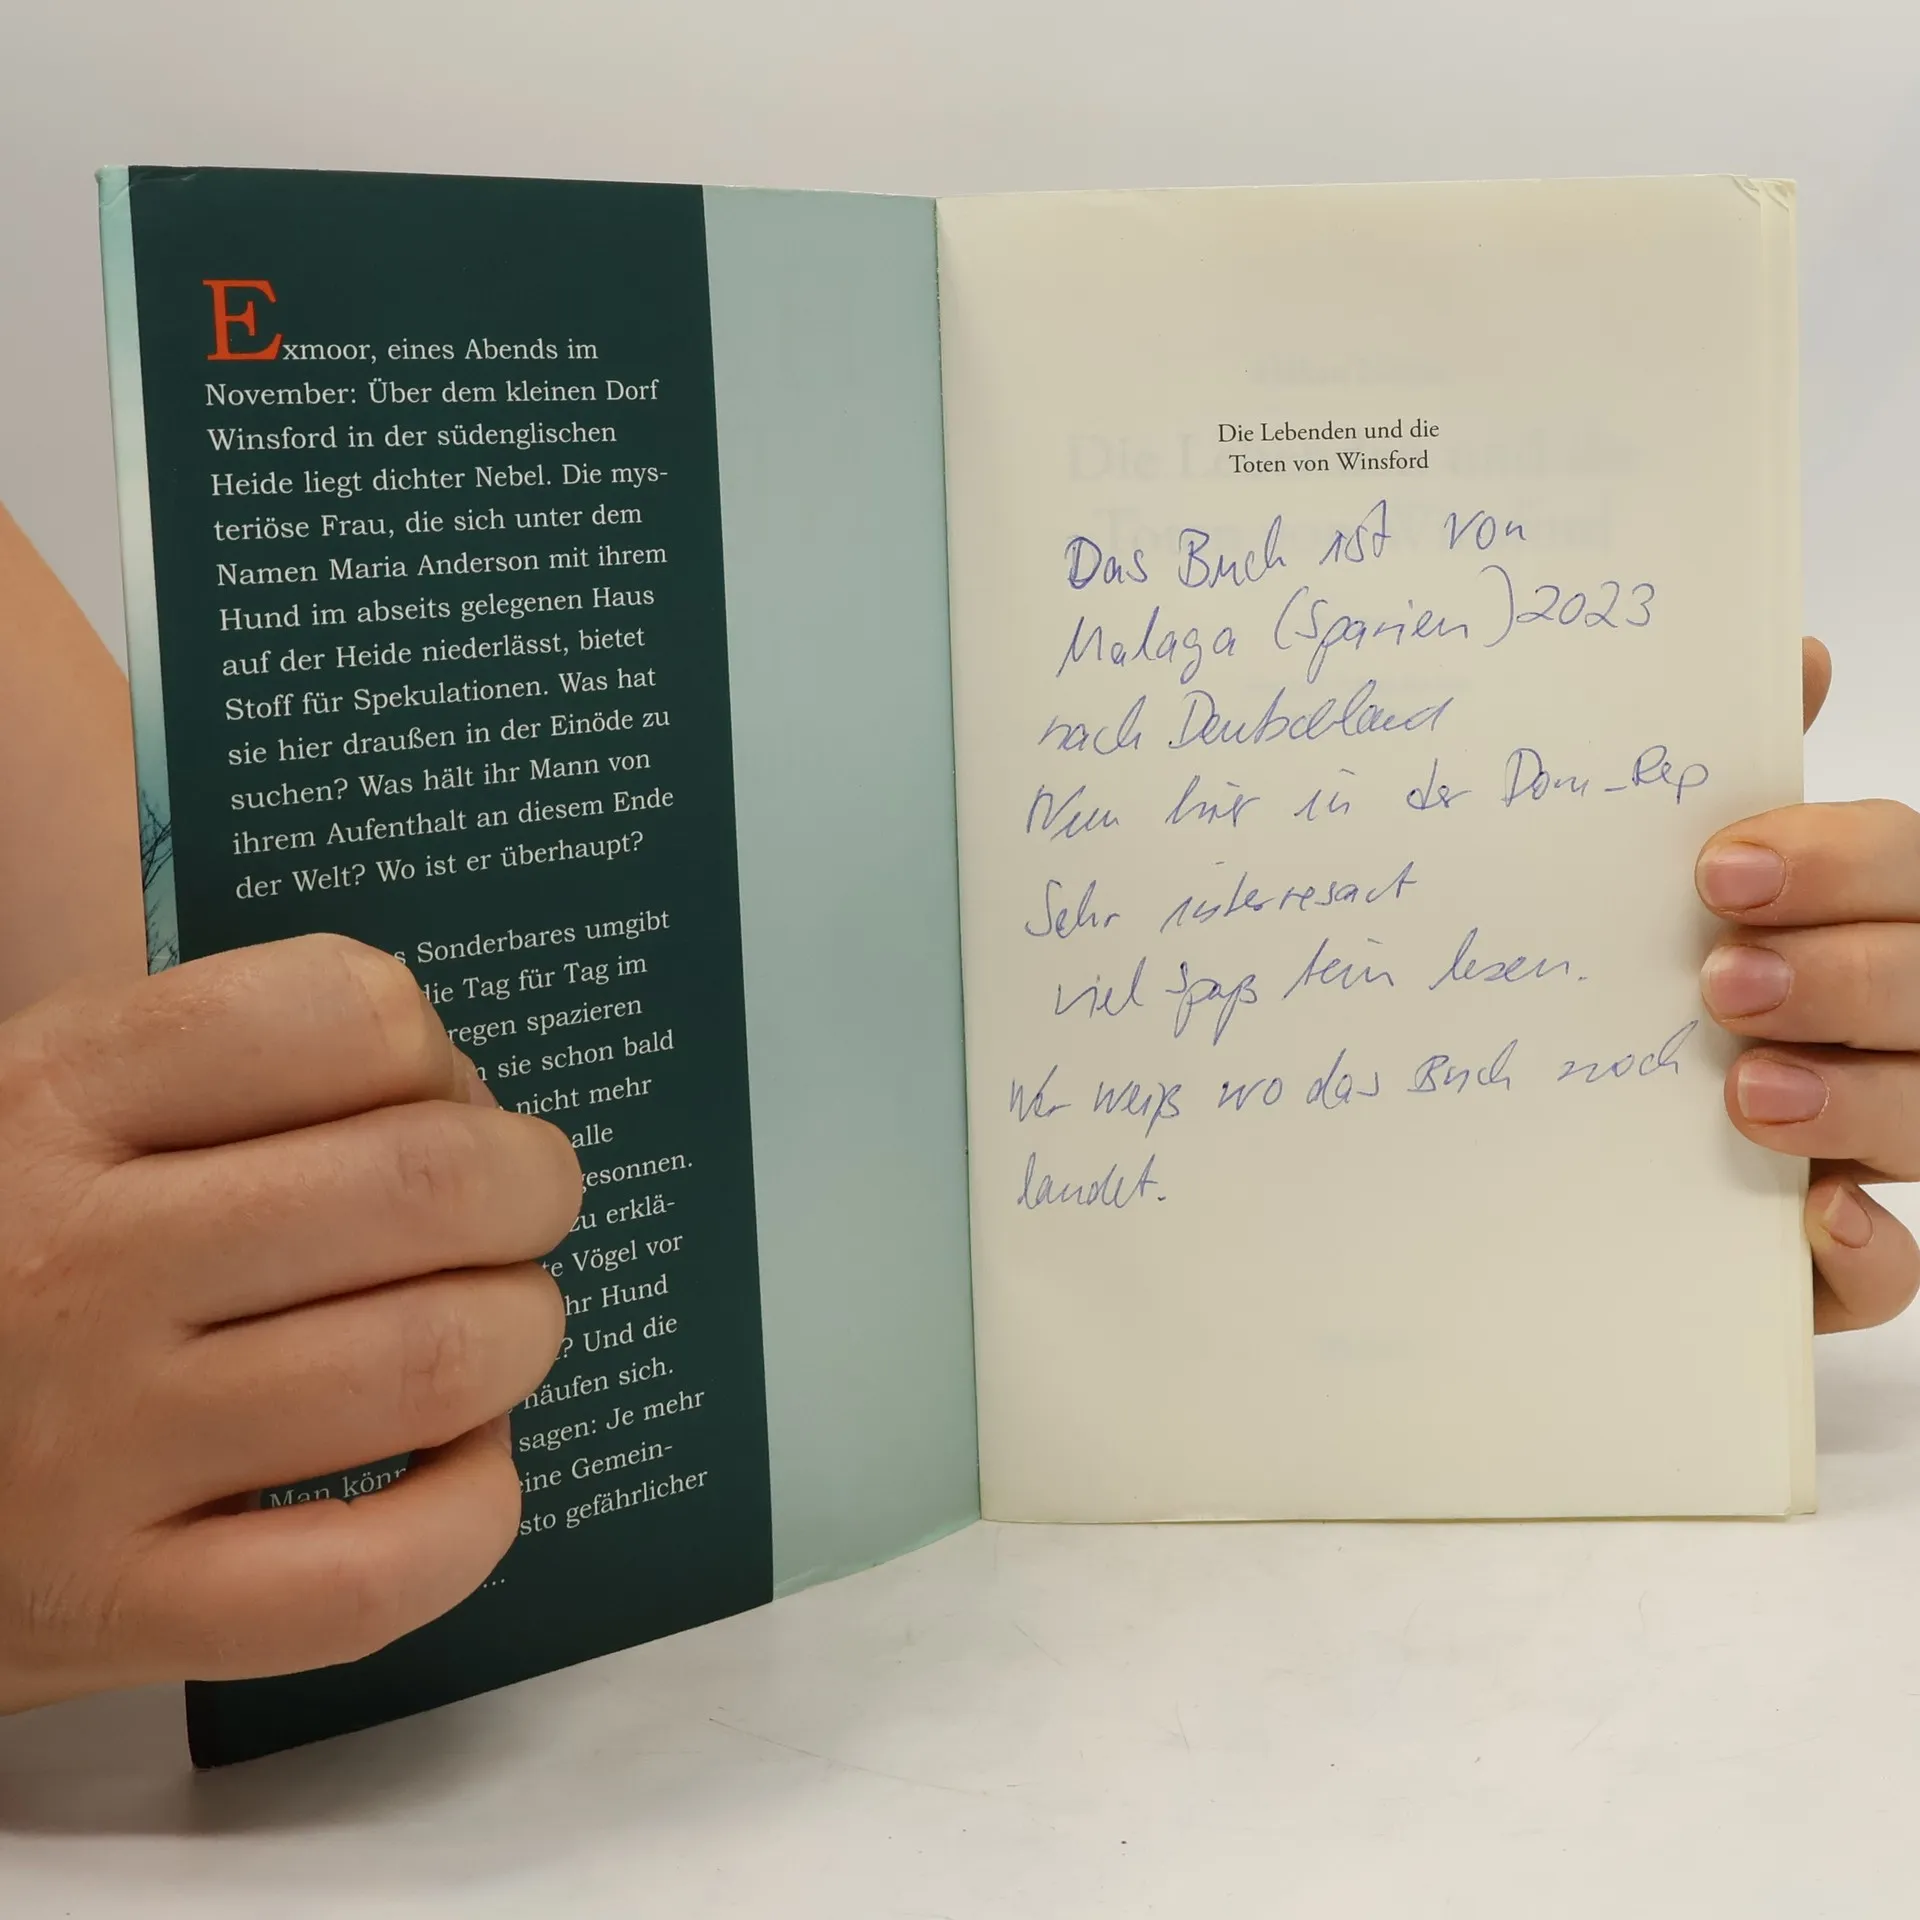 Exmoor, eines Abends im
November: Über dem kleinen Dorf
Winsford in der südenglischen
Heide liegt dichter Nebel. Die mys-
teriöse Frau, die sich unter dem
Namen Maria Anderson mit ihrem
Hund im abseits gelegenen Haus
auf der Heide niederlässt, bietet
Stoff für Spekulationen. Was hat
sie hier draußen in der Einöde zu
suchen? Was hält ihr Mann von
ihrem Aufenthalt an diesem Ende
der Welt? Wo ist er überhaupt?
s Sonderbares umgibt
die Tag für Tag im
regen spazieren
n sie schon bald
nicht mehr
alle
gesonnen.
zu erklä-
te Vögel vor
hr Hund
? Und die
häufen sich.
sagen: Je mehr
Man könn
eine Gemein-
sto gefährlicher
...
Die Lebenden und die
Toten von Winsford
Das Buch ist von
Malaga (Spanien) 2023
nach Deutschland
Nun hier in der Dom-Rep
Sehr interresant
viel Spaß beim lesen.
Wer weiß wo das Buch noch
landet.